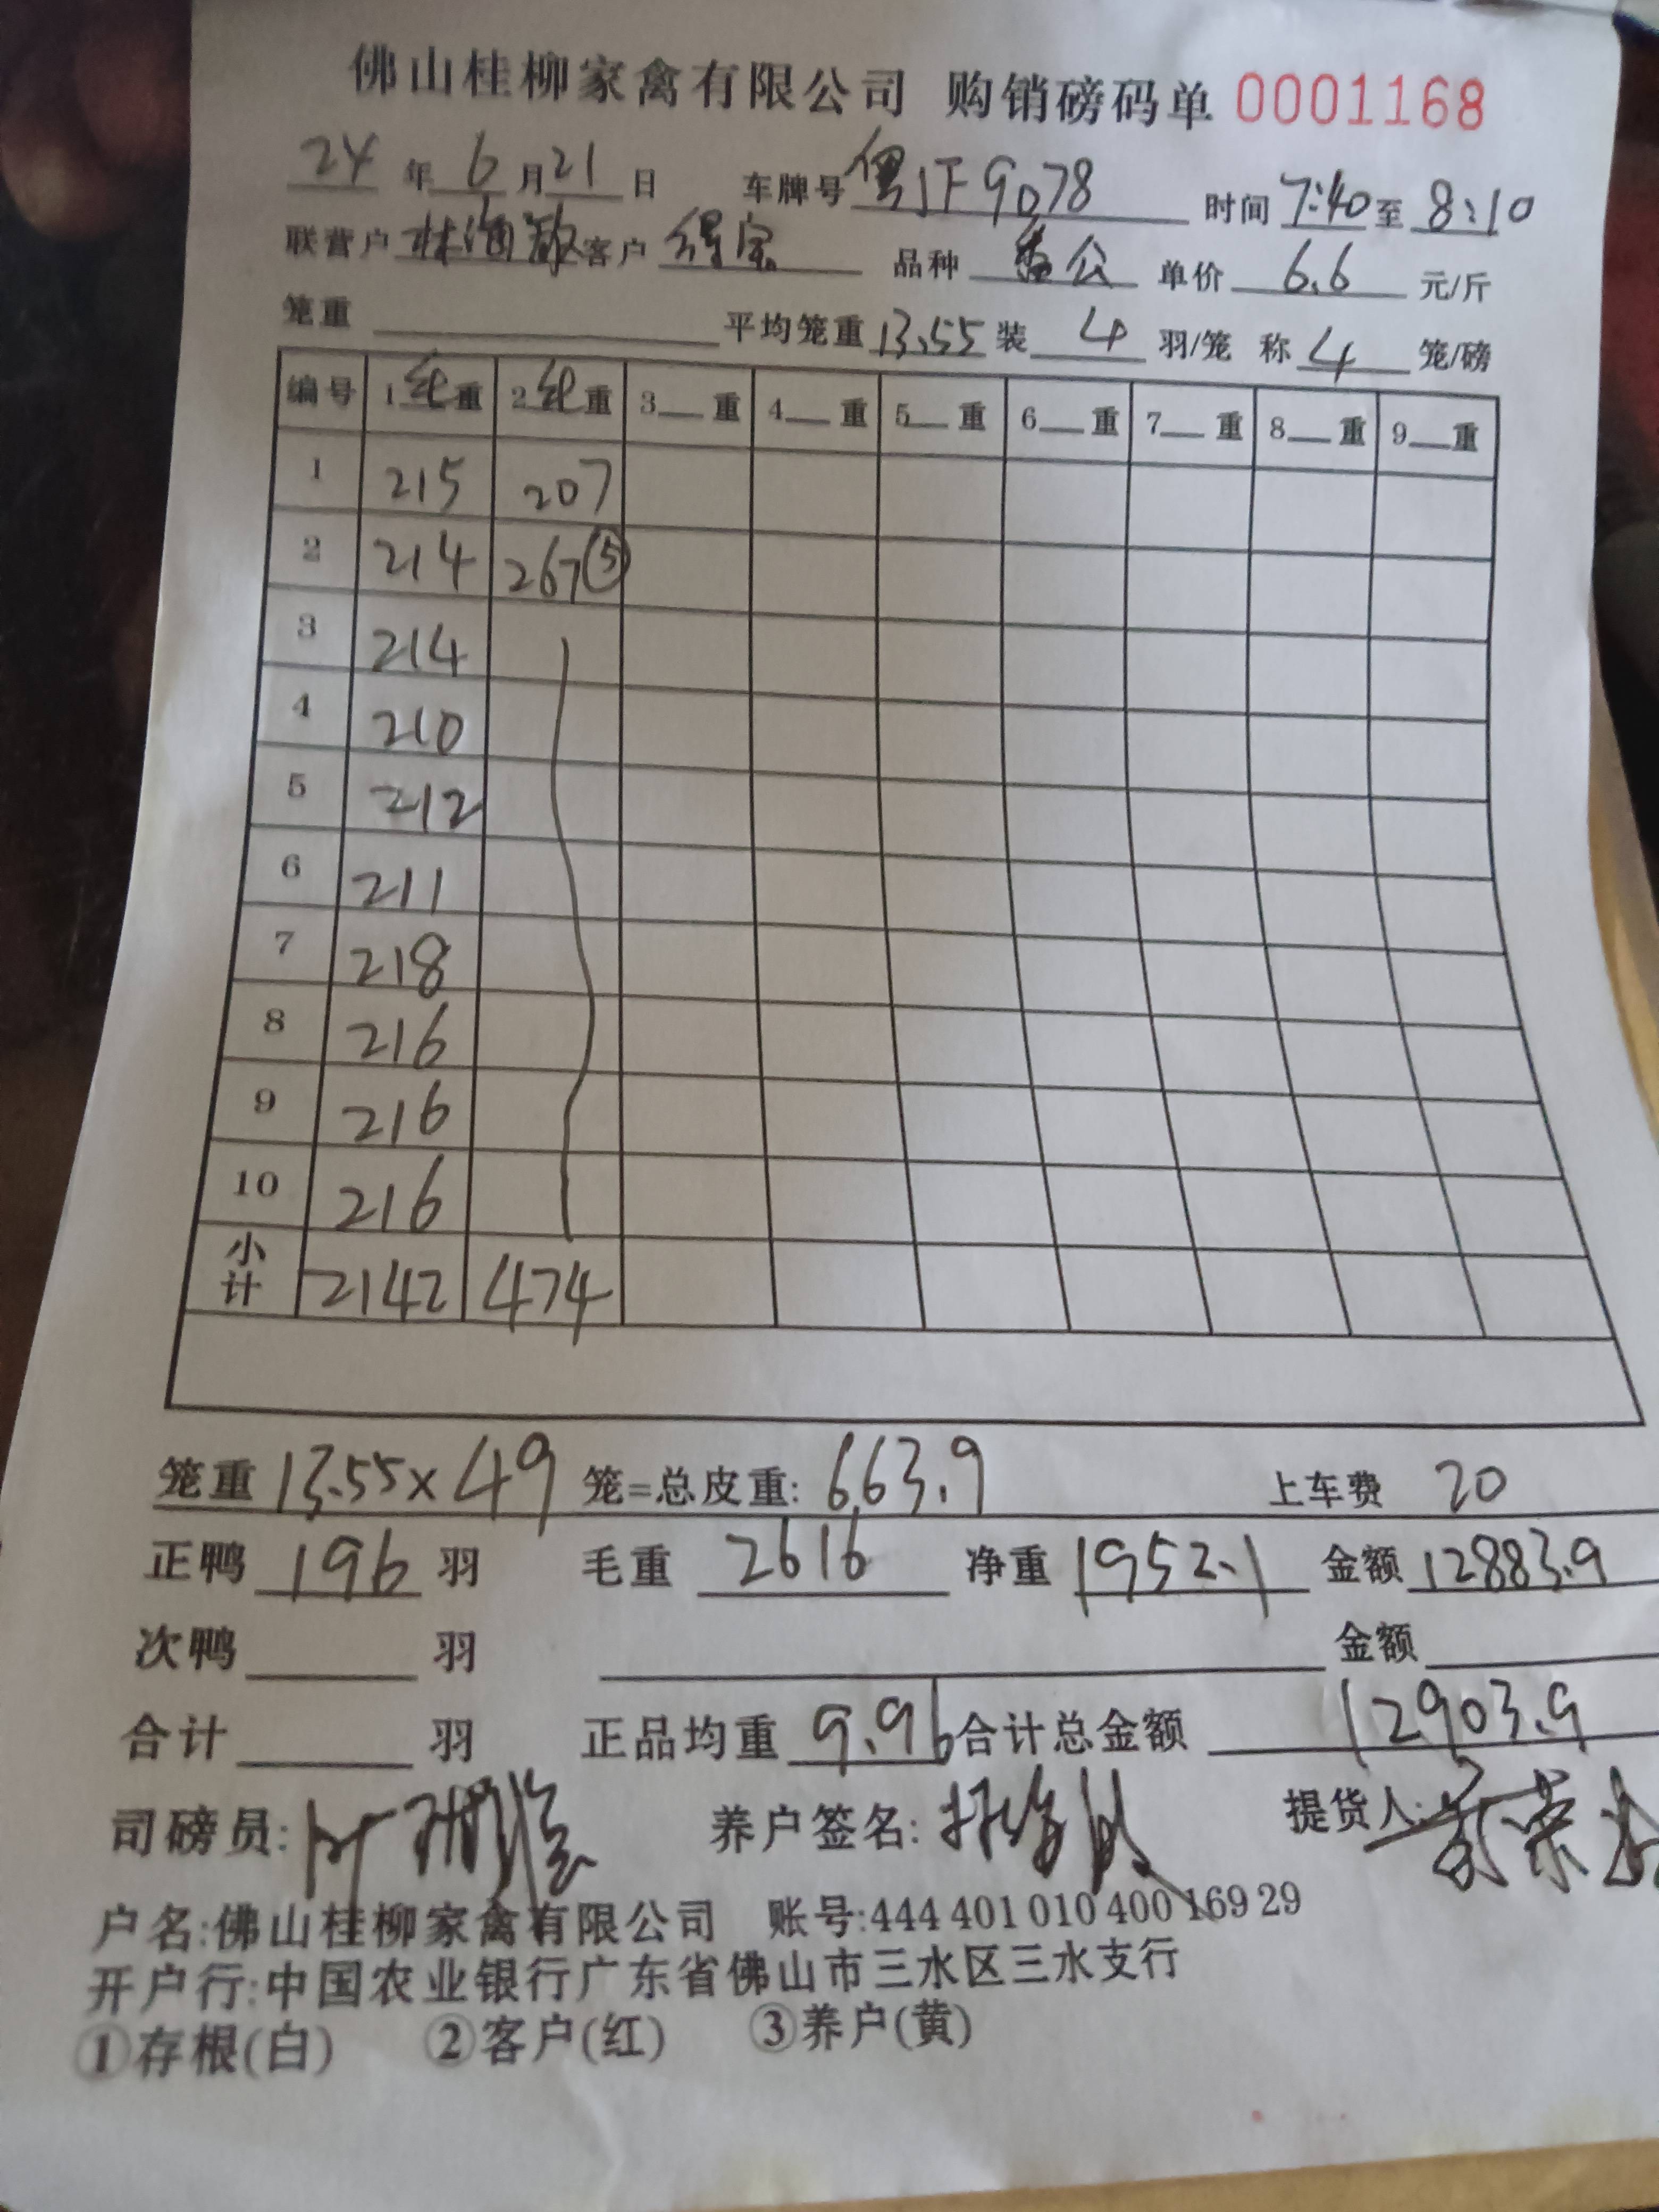 佛山桂柳家禽有限公司 购销磅码单 0001168
24 年 6 月 21 日 车牌号 粤JF9078 时间 7:40 至 8:10
联营户 林 客户 得宗 品种 公 单价 6.6 元/斤
笼重 平均笼重 13.55 装 4 羽/笼 称 4 笼/磅
编号 1 纯 重 2 纯 重 3 重 4 重 5 重 6 重 7 重 8 重 9 重
1 215 207
2 214 267 ⑤
3 214
4 210
5 212
6 211
7 218
8 216
9 216
10 216
小计 2142 474
笼重 13.55 x 49 笼=总皮重: 663.9 上车费 20
正鸭 196 羽 毛重 2616 净重 1952.1 金额 12883.9
次鸭 羽 金额
合计 羽 正品均重 9.96 合计总金额 12903.9
司磅员: 养户签名: 提货人:
户名:佛山桂柳家禽有限公司 账号:444 401 010 400 169 29
开户行:中国农业银行广东省佛山市三水区三水支行
①存根(白) ②客户(红) ③养户(黄)